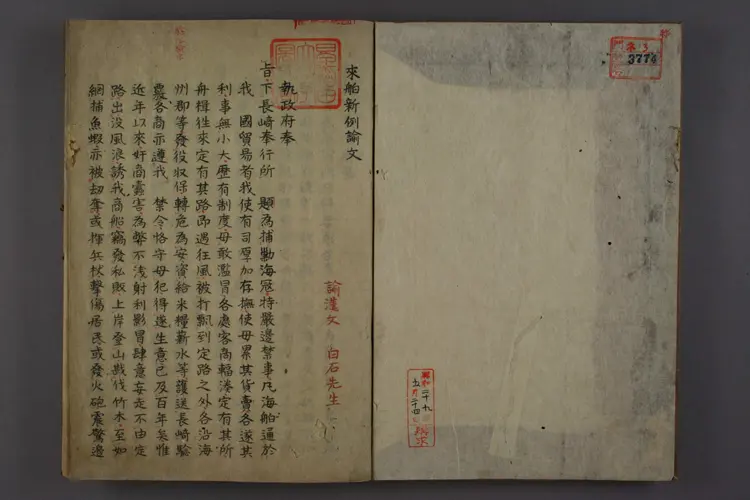 來舶新例諭文
諭漢文　白石先生
執政府奉
旨下長崎奉行所　題為捕勦海冦特嚴邊禁事凡海舶通於
我　國貿易者我使有司厚加存撫使毋累其貨賣各遂其
利事無小大歷有制度毋敢濫冒各處客商輻湊定有其所
舟楫往來定有其路即遇狂風被打飄到定路之外各沿海
州郡等發役収保轉危為安資給米糧薪水等護送長崎驗
各商亦遵我　禁令恪守毋犯得遂生意已及百年矣惟
近年以來奸商蠹害為弊不淺射利影冒肆意妄走不由定
路出没風浪誘我商船竊發私販上岸登山戕伐竹木至如
網捕魚蝦亦被劫奪或揮兵杖擊傷居民或發火砲震驚邊
3774
昭和二十九
五月二十四